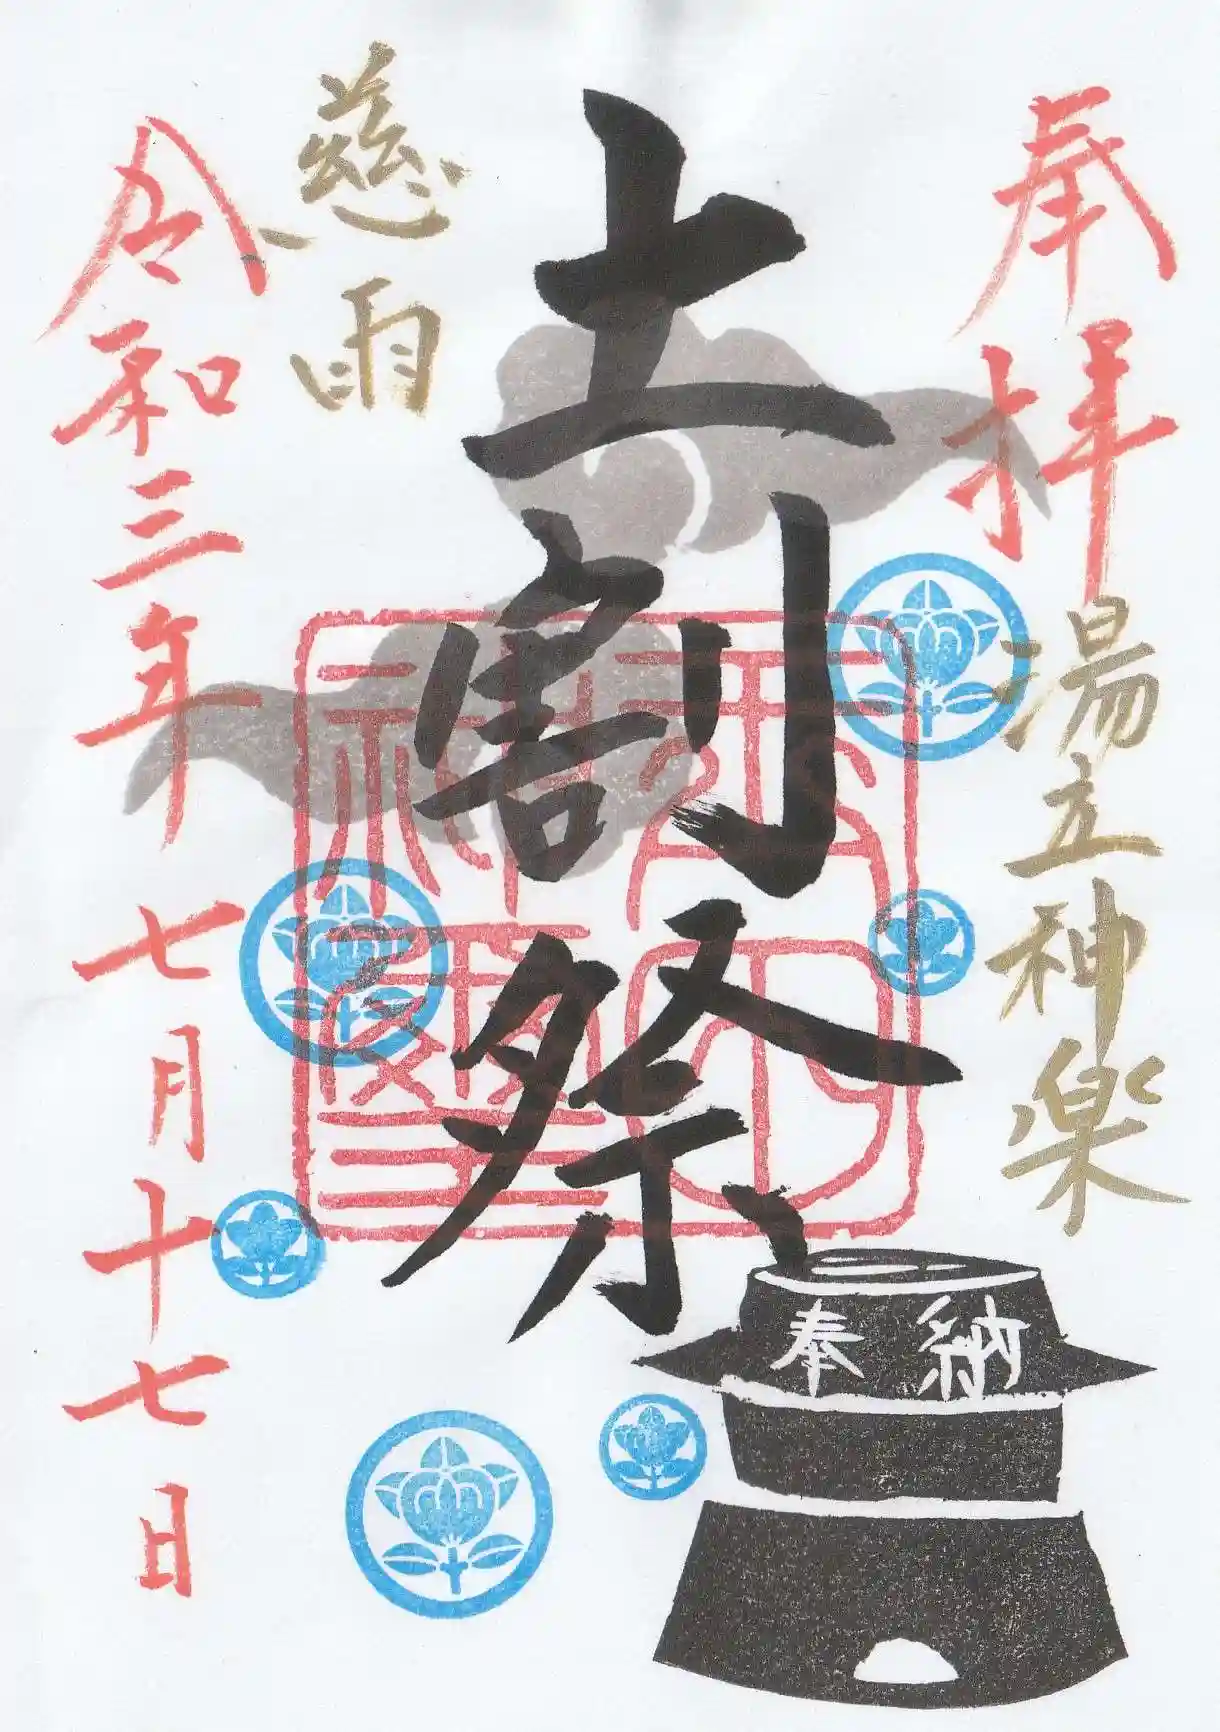 奉拝
湯立神楽
土割祭
慈雨
令和三年七月十七日
奉納